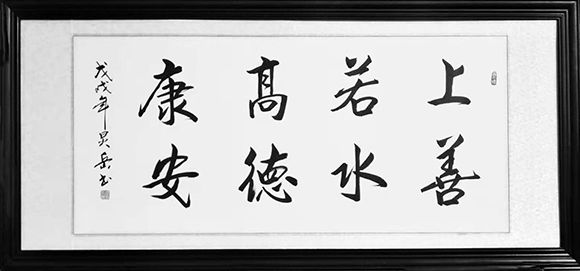 上善
若水
髙德
康安
戊戌年昊岳书